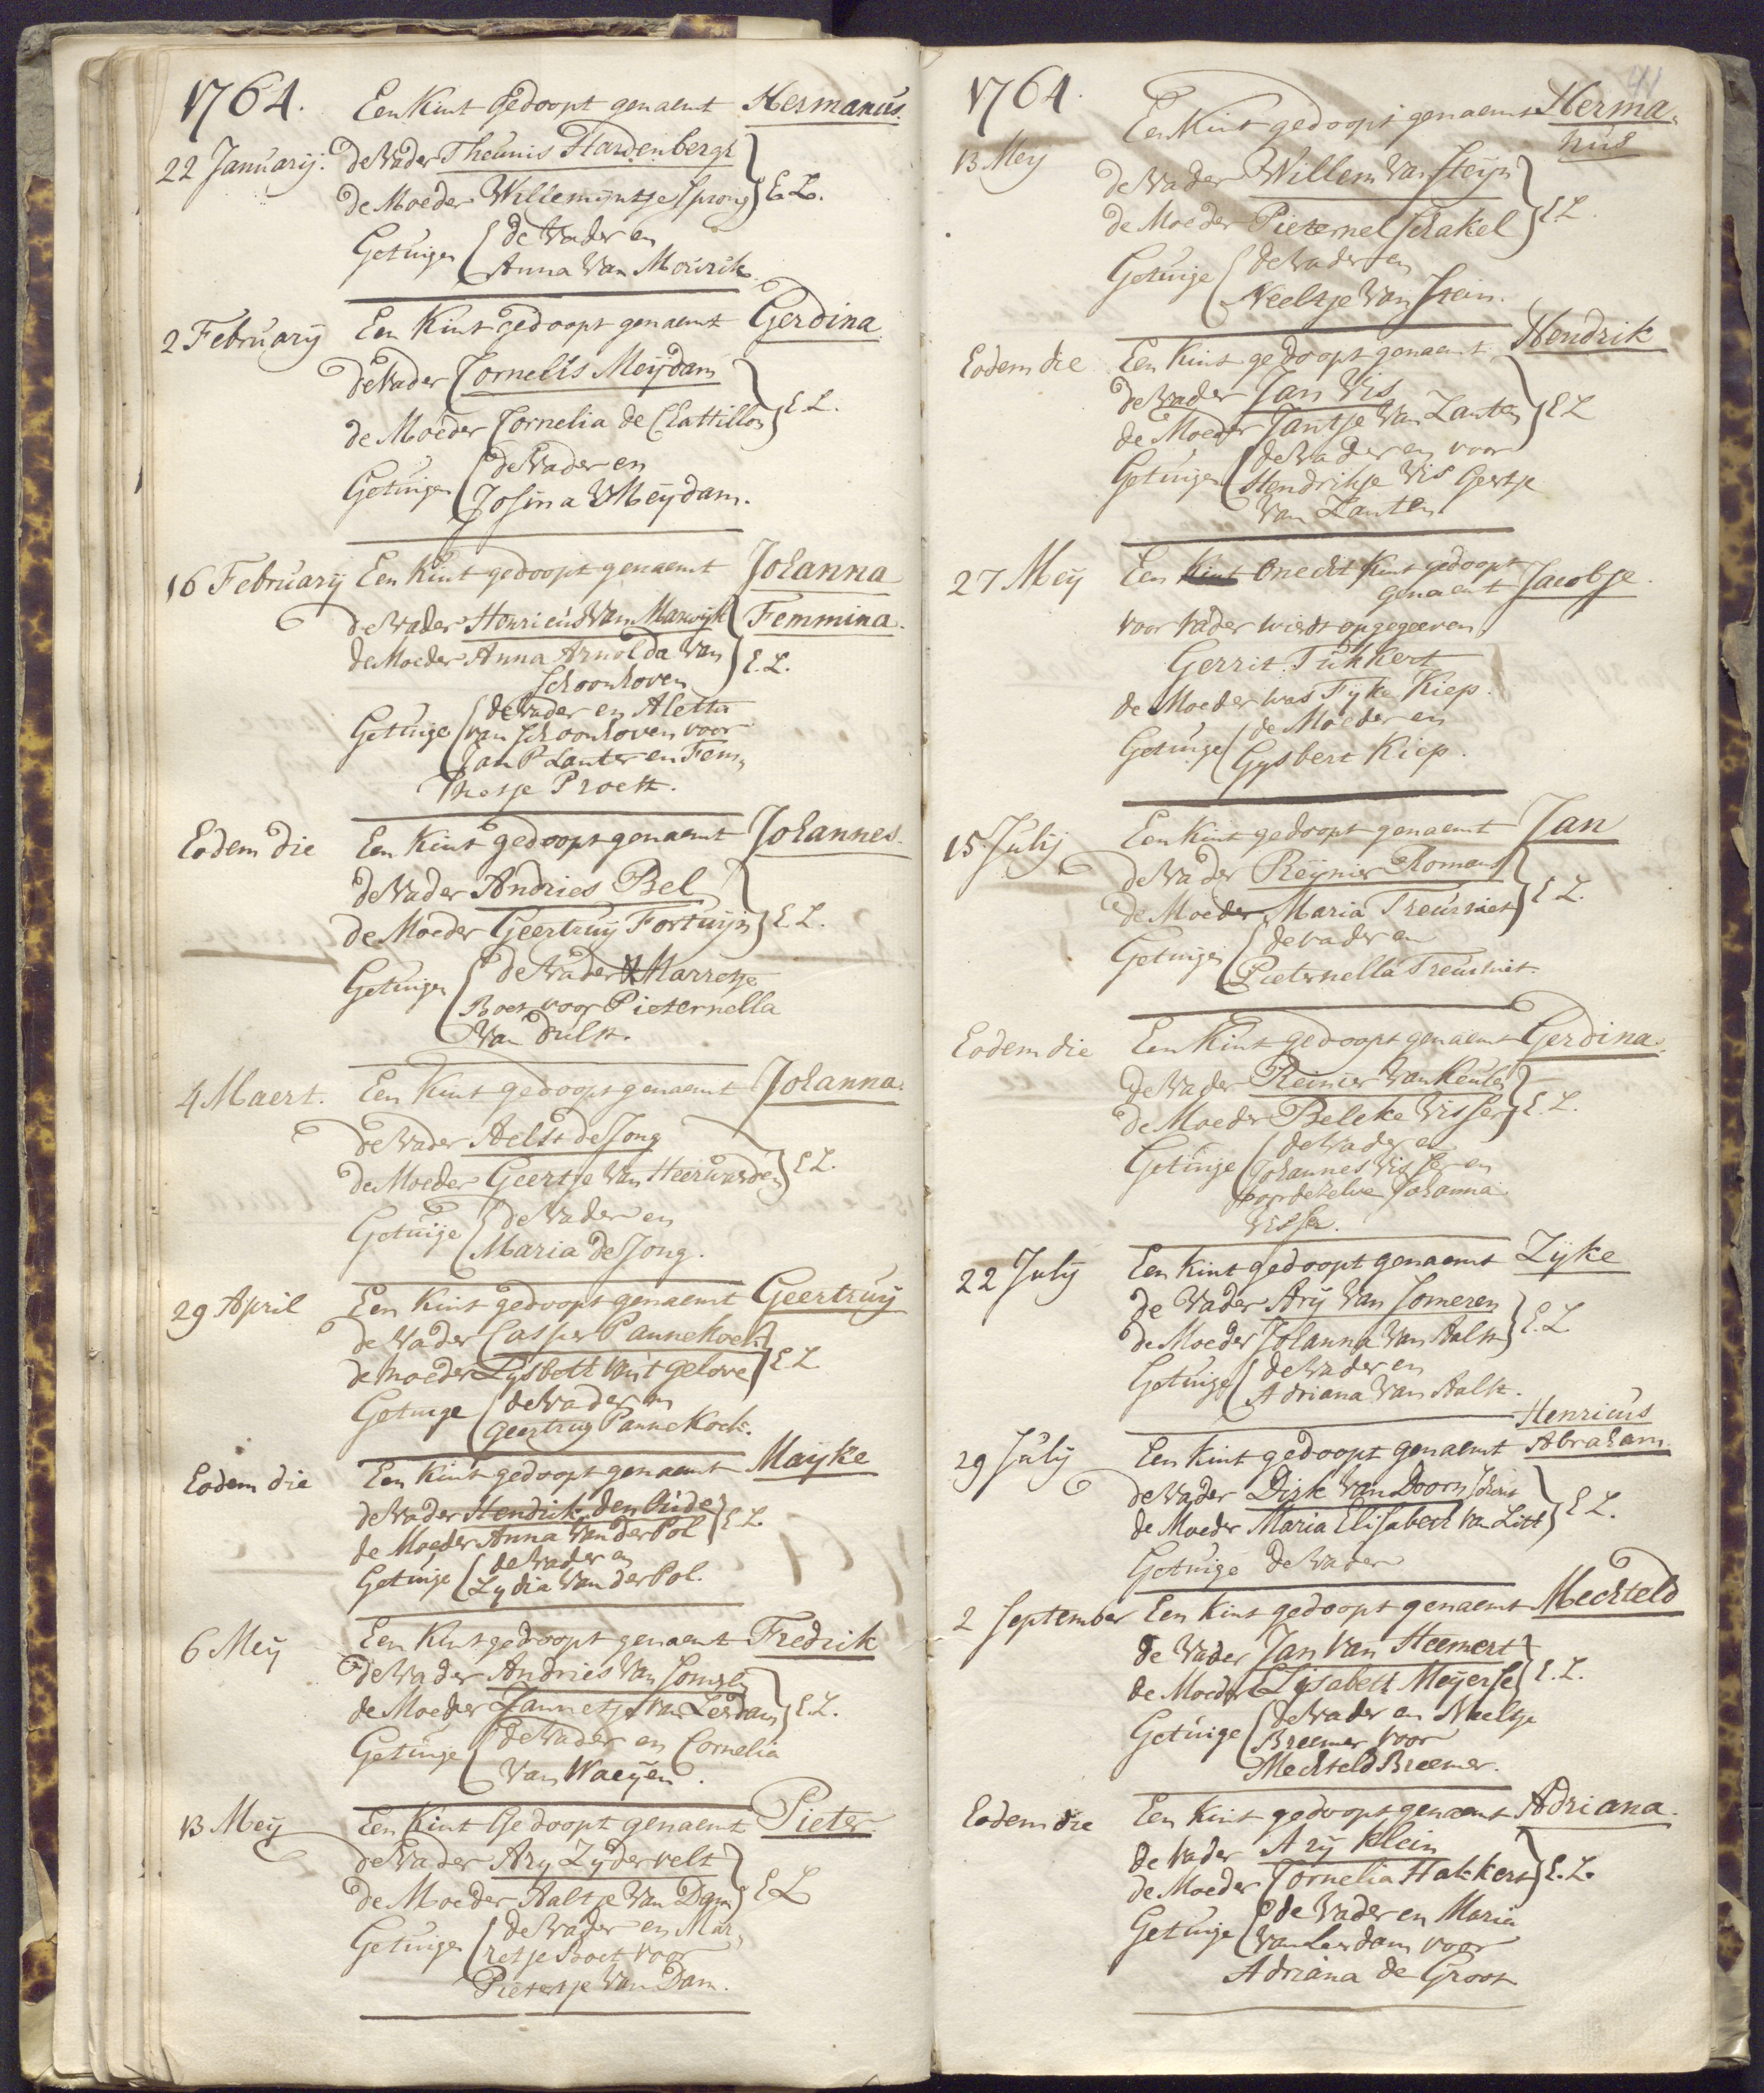 1764.
Een Kint Gedoopt genaemt Hermanus.
22 Januarij: de Vader Theunis Hardenbergh
de Moeder Willemijntje Sprong } E.L.
Getuigen { de Vader en
Anna Van Mourik
2 February Een Kint gedoopt genaemt Gerdina
de Vader Cornelis Meijdam
de Moeder Cornelia de Chattillon } E.L.
Getuigen { de Vader en
Josina V Meijdam.
16 February Een Kint gedoopt genaemt Johanna
de Vader Henricus Van Marwijk Femmina.
de Moeder Anna Arnolda Van } E.L.
Schoonhoven
Getuige { de Vader en Aletta
van Schoonhoven voor
Jan P Lanter en Fem„
Thesje Proett.
Eodem die Een Kint gedoopt genaemt Johannes.
de Vader Andries Bel
de Moeder Geertruij Fortuijn } E.L.
Getuigen { de Vader Marretje
Boet voor Pieternella
Van Dulst.
4 Maert. Een Kint gedoopt genaemt Johanna.
de Vader Aelst de Jong
de Moeder Geertje Van Heerwarden } E.L.
Getuige { de Vader en
Maria de Jong.
29 April Een Kint gedoopt genaemt Geertruij
de Vader Casper Pannekoek
de Moeder Lijsbeth van't Gelove } E.L.
Getuige { de Vader en
Geertruy Pannekoek.
Eodem die Een Kint gedoopt genaemt Mayke
de Vader Hendrik den Oude
de Moeder Anna Van der Pol } E.L.
Getuige { de Vader en
Lydia Van der Pol.
6 Meij Een Kint gedoopt genaemt Fredrik
de Vader Andries Van
de Moeder Jannetje van Lerdam } E.L.
Getuige { de Vader en Cornelia
Van Waeijen.
13 Meij Een Kint Gedoopt genaemt Pieter
de Vader Ary Zijdervelt
de Moeder Aaltje Van Dam } E.L.
Getuigen { de Vader en Mar„
retje Boet voor
Pietertje Van Dam.
41
1764.
Een Kint gedoopt genaemt Herma„
nus
13 Meij de Vader Willem Van Steijn
de Moeder Pieternel Schakel } E.L.
Getuige { de Vader en
Neeltje Van Stein.
Eodem die Een Kint gedoopt genaemt Hendrik
de Vader Jan Vis
de Moeder Jantje Van Zanten } E.L.
Getuigen { de Vader en voor
Hendrikje Vis Geertje
Van Zanten
27 Meij Een Kint Onecht Kint gedoopt
genaemt Jacobje.
voor vader wiert opgegeeven
Gerrit Tukkert
de Moeder was Fijke Kiep.
Getuige { de Moeder en
Gysbert Kiep.
15 Julij Een Kint gedoopt genaemt Jan
de Vader Reijnier Romans
de Moeder Maria Treurniet } E.L.
Getuigen { de vader en
Pieternella Treurniet.
Eodem die Een Kint gedoopt genaemt Gerdina.
de Vader Reinier Van Keulen
de Moeder Beleke Visser } E.L.
Getuige { de Vader en
Johannes Visser en
voor dezelve Johanna
Visser.
22 Julij Een Kint gedoopt genaemt Zijke
de Vader Arij Van Someren
de Moeder Johanna Van Aalst } E.L.
Getuige { de Vader en
Adriana Van Aalst.
Henricus
29 Julij Een Kint gedoopt genaemt Abraham.
de Vader Dirk Van Doorn
de Moeder Maria Elisabeth Van Litt } E.L.
Getuige de Vader
2 September Een Kint gedoopt genaemt Mechteld
de Vader Jan Van Heemert
de Moeder Elijsabeth Meijerse } E.L.
Getuige { de Vader en Neeltje
Breemer voor
Mechteld Breemer.
Eodem die Een Kint gedoopt genaemt Adriana.
de Vader Arij Klein
de Moeder Cornelia Hakkert } E.L.
Getuige { de Vader en Maria
Van Lerdam voor
Adriana de Groot